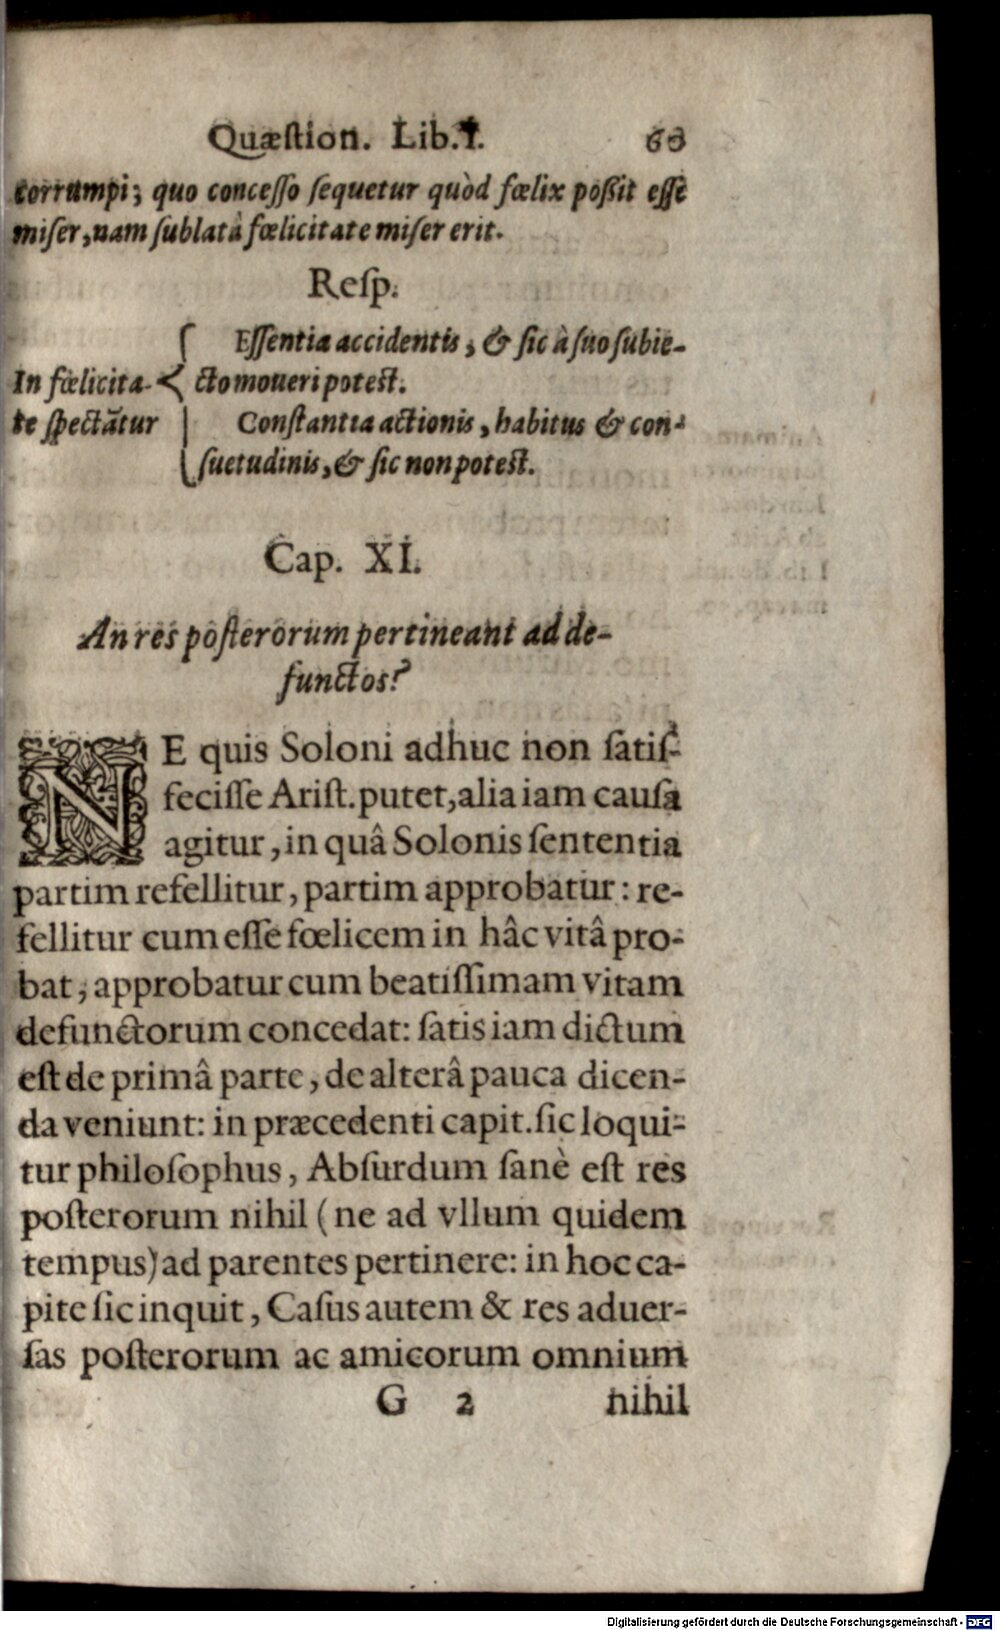 Quæſtion. Lib. I. 63
corrumpi; quo conceſſo ſequetur quòd fœlix poßit eſſe
miſer, nam ſublatâ fœlicitate miſer erit.
Reſp.
Eſſentia accidentis, & ſic à ſuo ſubie-
In fœlicita- cto moueri potest.
te ſpectātur Conſtantia actionis, habitus & con-
ſuetudinis, & ſic non potest.
Cap. XI.
An res poſterorum pertineant ad de-
functos?
NE quis Soloni adhuc non ſatiſ-
feciſſe Ariſt. putet, alia iam cauſa
agitur, in quâ Solonis ſententia
partim refellitur, partim approbatur: re-
fellitur cum eſſe fœlicem in hâc vitâ pro-
bat, approbatur cum beatiſſimam vitam
defunctorum concedat: ſatis iam dictum
eſt de primâ parte, de alterâ pauca dicen-
da veniunt: in præcedenti capit. ſic loqui-
tur philoſophus, Abſurdum ſanè eſt res
poſterorum nihil (ne ad vllum quidem
tempus) ad parentes pertinere: in hoc ca-
pite ſic inquit, Caſus autem & res aduer-
ſas poſterorum ac amicorum omnium
G 2 nihil
Digitalisierung gefördert durch die Deutsche Forschungsgemeinschaft - DFG